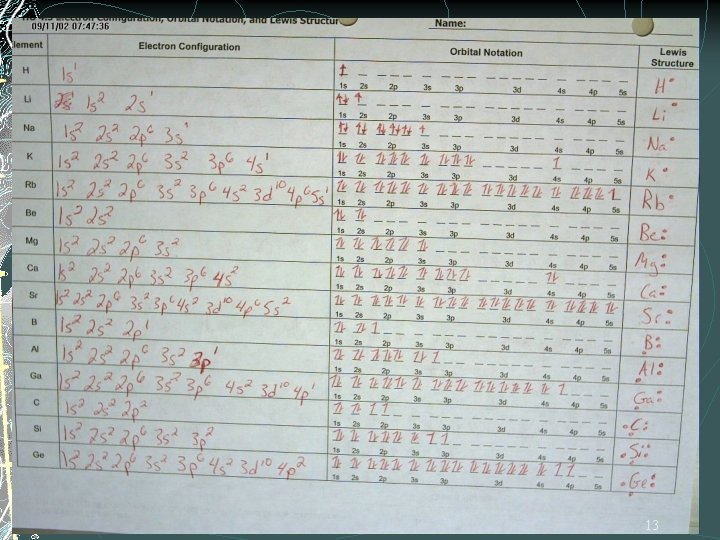 Electron Configuration, Orbital Notation, and Lewis Structur
Name:
09/11/02 07:47:36
lement Electron Configuration Orbital Notation Lewis Structure
H 1s¹ H
1s 2s 2p 3s 3p 3d 4s 4p 5s
Li 1s² 2s¹ Li
1s 2s 2p 3s 3p 3d 4s 4p 5s
Na 1s² 2s² 2p⁶ 3s¹ Na
1s 2s 2p 3s 3p 3d 4s 4p 5s
K 1s² 2s² 2p⁶ 3s² 3p⁶ 4s¹ K
1s 2s 2p 3s 3p 3d 4s 4p 5s
Rb 1s² 2s² 2p⁶ 3s² 3p⁶ 4s² 3d¹⁰ 4p⁶ 5s¹ Rb
1s 2s 2p 3s 3p 3d 4s 4p 5s
Be 1s² 2s² Be
1s 2s 2p 3s 3p 3d 4s 4p 5s
Mg 1s² 2s² 2p⁶ 3s² Mg
1s 2s 2p 3s 3p 3d 4s 4p 5s
Ca 1s² 2s² 2p⁶ 3s² 3p⁶ 4s² Ca
1s 2s 2p 3s 3p 3d 4s 4p 5s
Sr 1s² 2s² 2p⁶ 3s² 3p⁶ 4s² 3d¹⁰ 4p⁶ 5s² Sr
1s 2s 2p 3s 3p 3d 4s 4p 5s
B 1s² 2s² 2p¹ B
1s 2s 2p 3s 3p 3d 4s 4p 5s
Al 1s² 2s² 2p⁶ 3s² 3p¹ Al
1s 2s 2p 3s 3p 3d 4s 4p 5s
Ga 1s² 2s² 2p⁶ 3s² 3p⁶ 4s² 3d¹⁰ 4p¹ Ga
1s 2s 2p 3s 3p 3d 4s 4p 5s
C 1s² 2s² 2p² C
1s 2s 2p 3s 3p 3d 4s 4p 5s
Si 1s² 2s² 2p⁶ 3s² 3p² Si
1s 2s 2p 3s 3p 3d 4s 4p 5s
Ge 1s² 2s² 2p⁶ 3s² 3p⁶ 4s² 3d¹⁰ 4p² Ge
1s 2s 2p 3s 3p 3d 4s 4p 5s
13